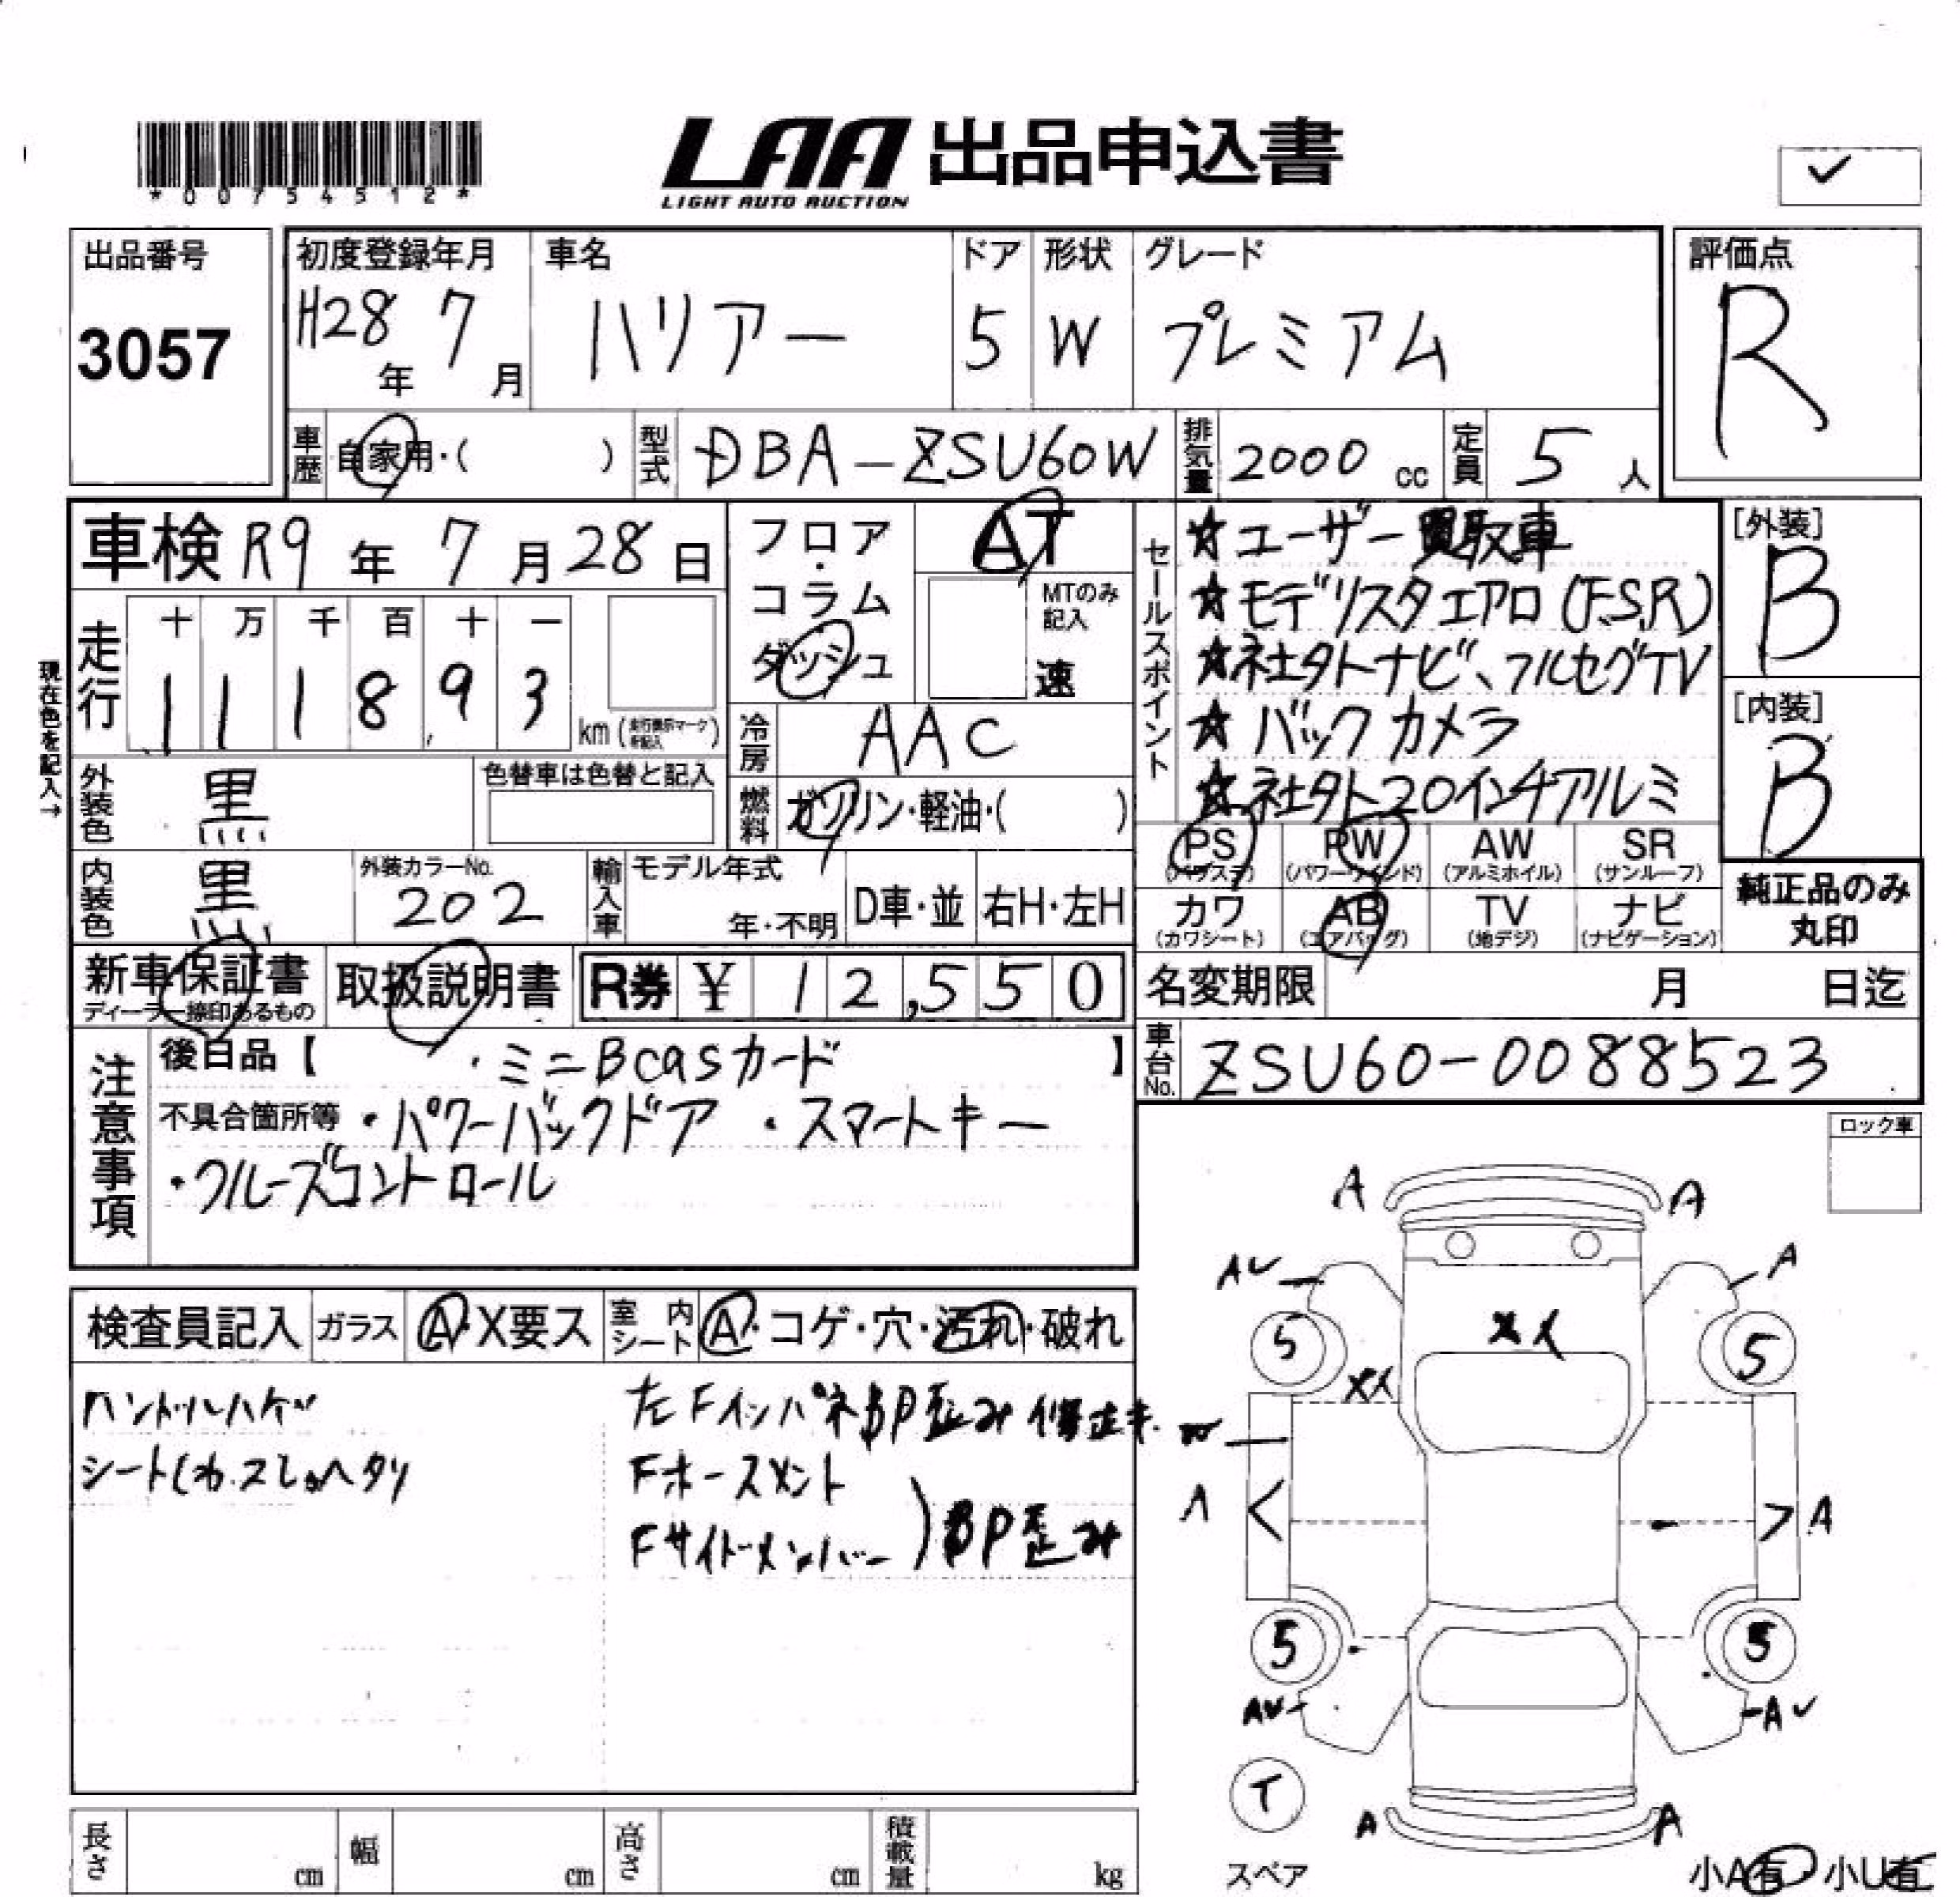 *00754512*
LAA 出品申込書
LIGHT AUTO AUCTION
✓
出品番号
3057
初度登録年月
H28年 7月
車名
ハリアー
ドア
5
形状
W
グレード
プレミアム
評価点
R
車歴 自家用・( )
型式 DBA-ZSU60W
排気量 2000 cc
定員 5 人
車検 R9年 7月28日
現在色を記入→
走行
十 万 千 百 十 一
1 1 1 8 9 3 km
フロア・コラム
ダッシュ
AT
MTのみ記入
速
冷房 AAC
燃料 ガソリン・軽油・( )
セールスポイント
☆ユーザー買取車
☆モデリスタエアロ(F.S.R)
☆社外ナビ、フルセグTV
☆バックカメラ
☆社外20インチアルミ
[外装]
B
[内装]
B
外装色 黒
色替車は色替と記入
内装色 黒
外装カラーNo.
202
輸入車
モデル年式
年・不明
D車・並
右H・左H
PS (パワステ)
PW (パワーウインド)
AW (アルミホイル)
SR (サンルーフ)
カワ (カワシート)
AB (エアバッグ)
TV (地デジ)
ナビ (ナビゲーション)
純正品のみ
丸印
新車保証書
ディーラー捺印あるもの
取扱説明書
R券 ¥ 12,550
名変期限 月 日迄
車台No. ZSU60-0088523
注意事項
後日品【 ・ミニBcasカード 】
不具合箇所等 ・パワーバックドア ・スマートキー
・クルーズコントロール
ロック車
検査員記入
ガラス A・X要ス
室内シート A・コゲ・穴・汚れ・破れ
ハンドルハゲ
シート
左Fインパネ部BP歪み修正キ
Fホースメント
Fサイドメンバー )BP歪み
A A
AU A
5 5
XX
XX
W
A A
5 5
AU AU
T
スペア
A A
小A有・小U有
長さ cm
幅 cm
高さ cm
積載量 kg